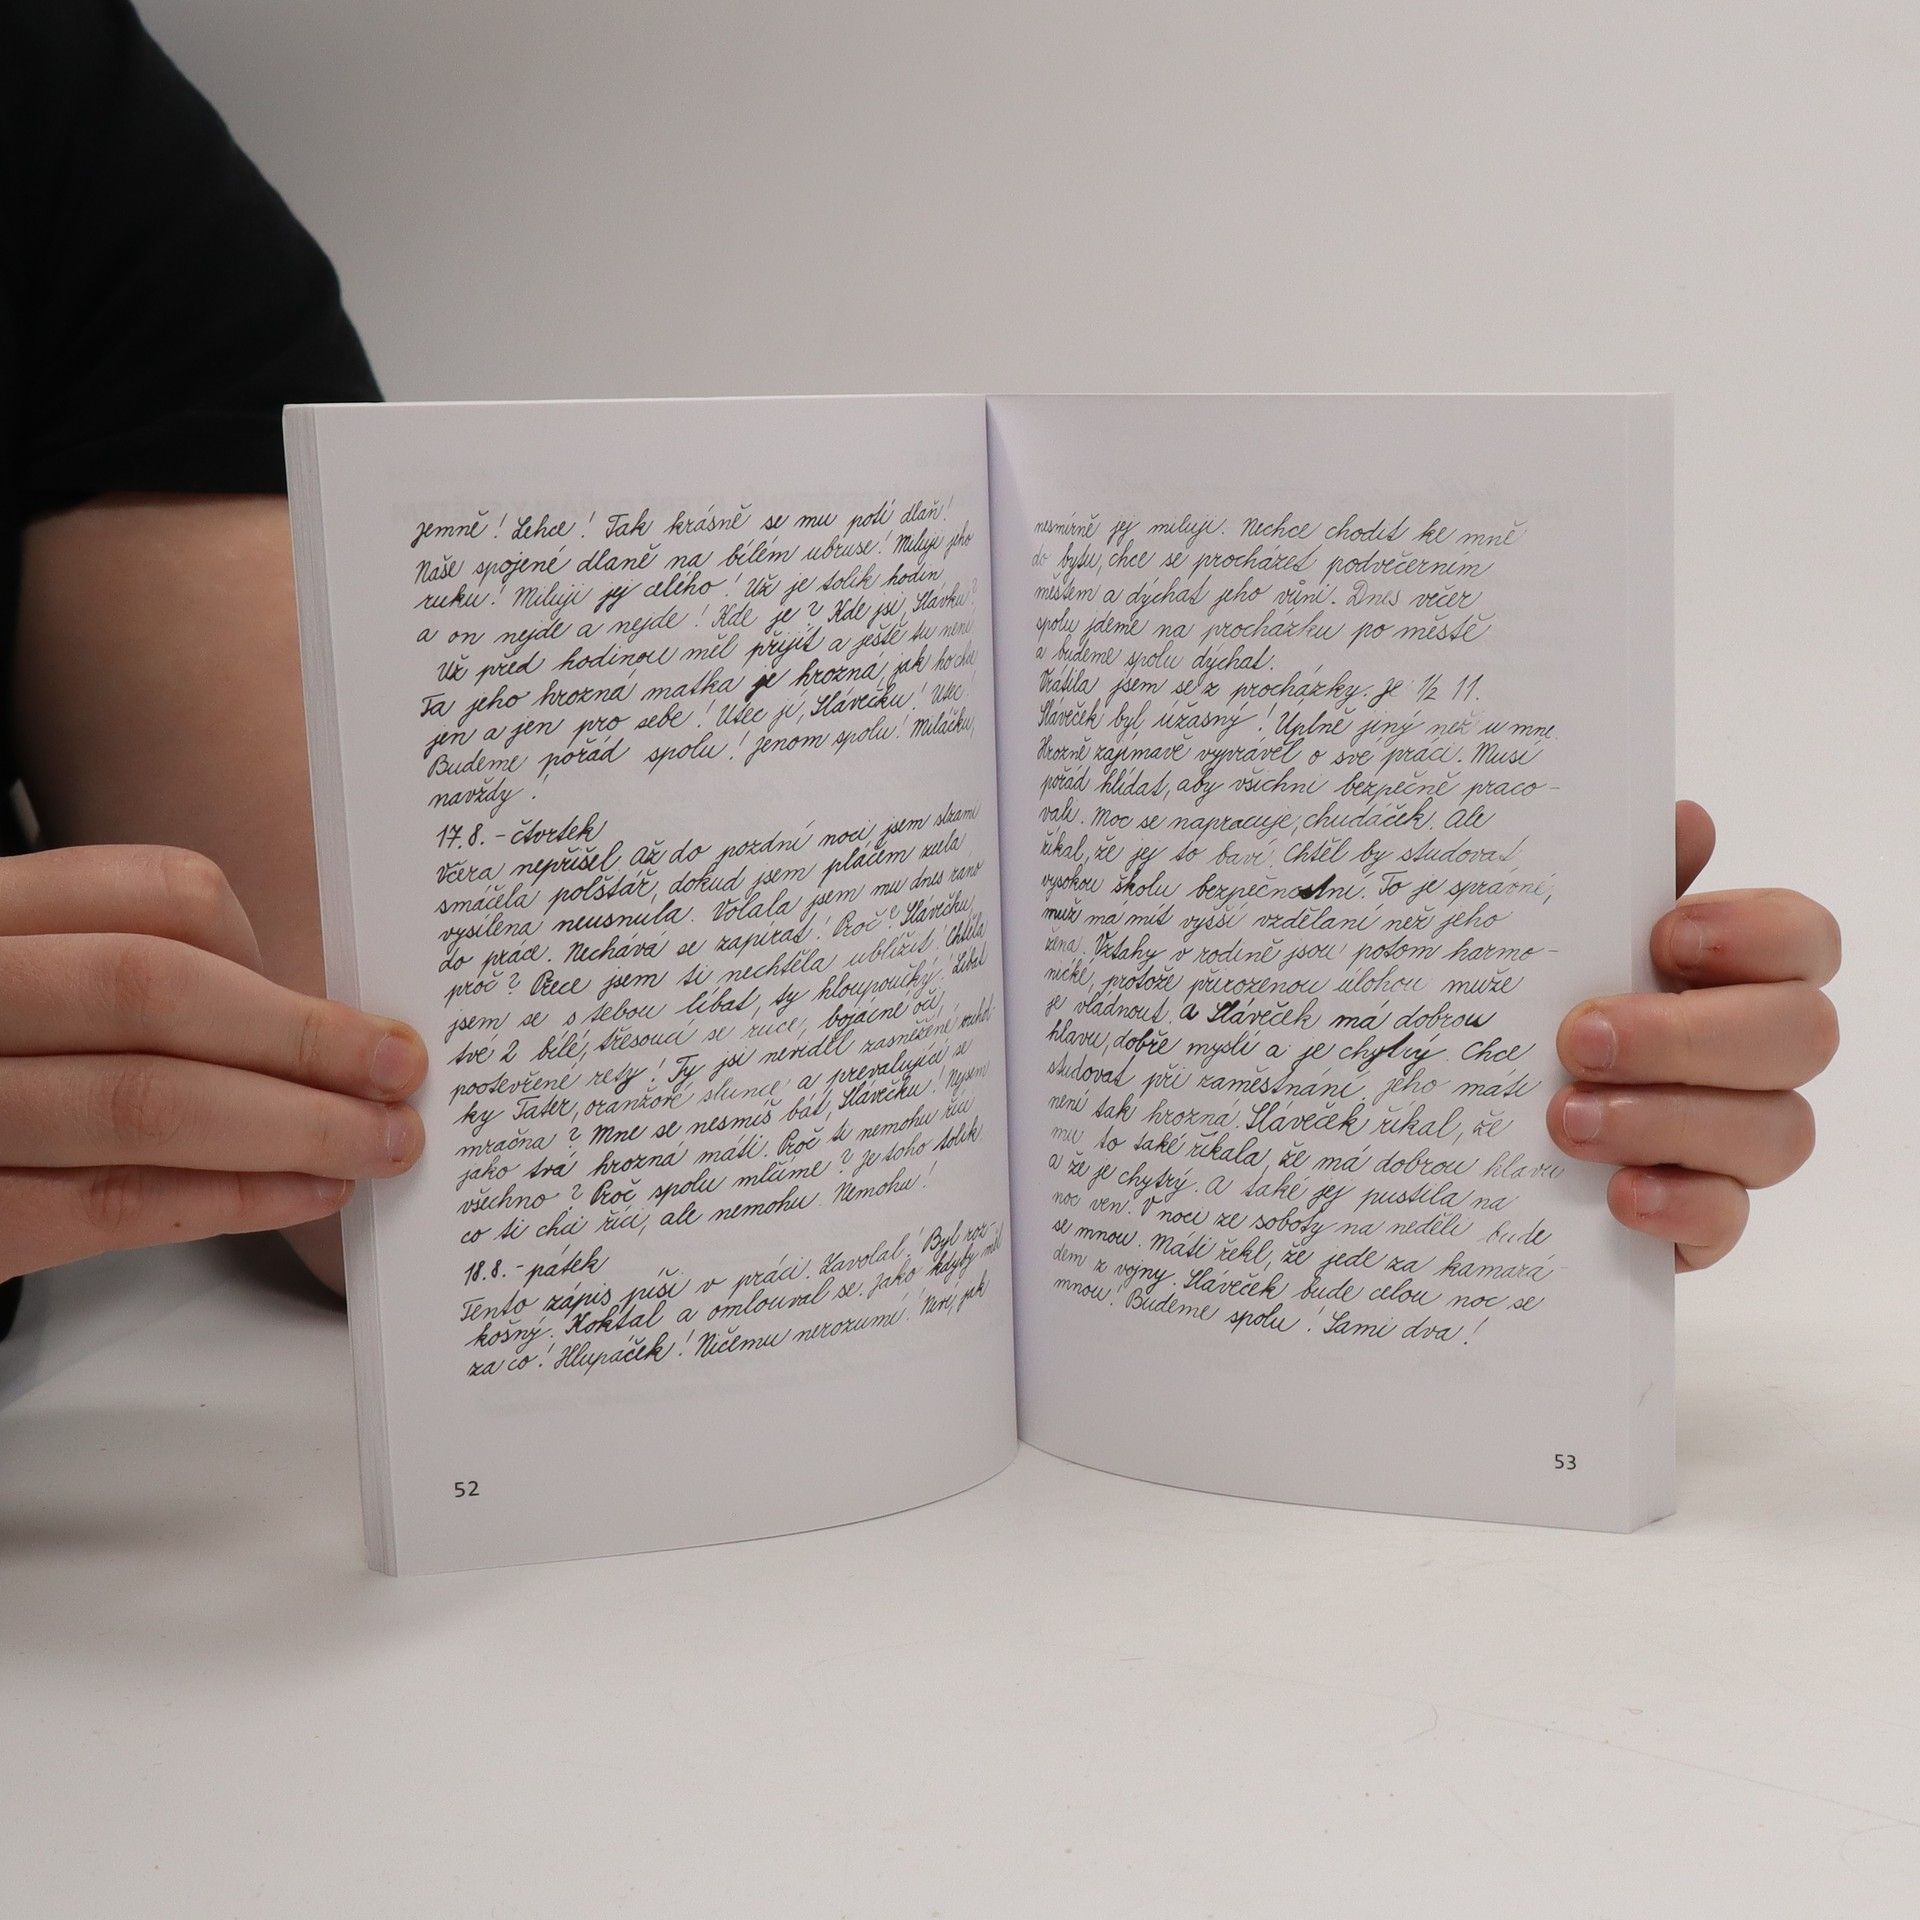 Jemně! Lehce! Tak krásně se mu potí dlaň!
Naše spojené dlaně na bílém ubruse! Miluji jeho
ruku! Miluji jej celého! Už je tolik hodin,
a on nejde a nejde! Kde je? Kde jsi, Slávku?
Už před hodinou měl přijít a ještě tu není
Ta jeho hrozná matka je hrozná, jak ho chce
jen a jen pro sebe! Uteč jí, Slávečku! Uteč!
Budeme pořád spolu! Jenom spolu! Miláčku,
navždy!
17.8. - čtvrtek
Včera nepřišel. Až do pozdní noci jsem slzami
smáčela polštář, dokud jsem pláčem zcela
vysílena neusnula. Volala jsem mu dnes ráno
do práce. Nechává se zapírat! Proč? Slávečku,
proč? Přece jsem ti nechtěla ublížit! Chtěla
jsem se s tebou líbat, ty hloupoučký! Líbat
tvé 2 bílé, třesoucí se ruce, bojácné oči,
pootevřené rety! Ty jsi neviděl zasněžené vrchol-
ky Tater, oranžové slunce a převalující se
mračna? Mne se nesmíš bát, Slávečku! Nejsem
jako tvá hrozná máti. Proč ti nemohu říci
všechno? Proč spolu mlčíme? Je toho tolik
co ti chci říci, ale nemohu. Nemohu!
18.8. - pátek
Tento zápis píši v práci. Zavolal! Byl roz-
košný. Koktal a omlouval se. Jako kdyby měl
za co! Hlupáček! Ničemu nerozumí! Neví, jak
52
nesmírně jej miluji. Nechce chodit ke mně
do bytu, chce se procházet podvečerním
městem a dýchat jeho vůni. Dnes večer
spolu jdeme na procházku po městě
a budeme spolu dýchat.
Vrátila jsem se z procházky. Je 1/2 11.
Sláveček byl úžasný! Úplně jiný než u mne.
Hrozně zajímavě vyprávěl o své práci. Musí
pořád hlídat, aby všichni bezpečně praco-
vali. Moc se napracuje, chudáček. Ale
říkal, že jej to baví. Chtěl by studovat
vysokou školu bezpečnostní. To je správné,
muž má mít vyšší vzdělání než jeho
žena. Vztahy v rodině jsou potom harmo-
nické, protože přirozenou úlohou muže
je vládnout. A Sláveček má dobrou
hlavu, dobře myslí a je chytrý. Chce
studovat při zaměstnání. Jeho máti
není tak hrozná. Sláveček říkal, že
mu to také říkala, že má dobrou hlavu
a že je chytrý. A také jej pustila na
noc ven. V noci ze soboty na neděli bude
se mnou. Máti řekl, že jede za kamará-
dem z vojny. Sláveček bude celou noc se
mnou! Budeme spolu! Sami dva!
53